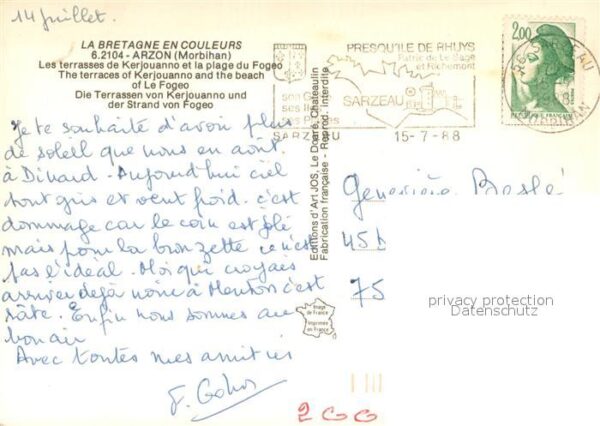 14 juillet.
LA BRETAGNE EN COULEURS
6.2104 - ARZON (Morbihan)
Les terrasses de Kerjouanno et la plage du Fogeo
The terraces of Kerjouanno and the beach
of Le Fogeo
Die Terrassen von Kerjouanno und
der Strand von Fogeo
Je te souhaite d'avoir plus
de soleil que nous en août
à Dinard. Aujourd'hui ciel
tout gris et vent froid. c'est
dommage car le coin est joli
mais pour la bronzette ce n'est
pas l'idéal. Moi qui croyais
arriver déjà noire à Menton c'est
râté. Enfin nous sommes au
bon air
Avec toutes mes amitiés
Editions d'Art JOS, Le Doaré, Chateaulin
Fabrication française - Reprod. interdite
PRESQU'ILE DE RHUYS
Patrie de Le Sage
et Richemont
SARZEAU
SARZEAU
15-7-88
2,00
RÉPUBLIQUE FRANÇAISE
56 SARZEAU
MORBIHAN
Geneviève
45
75
Image
de France
Imprimée
en France
privacy protection
Datenschutz
200